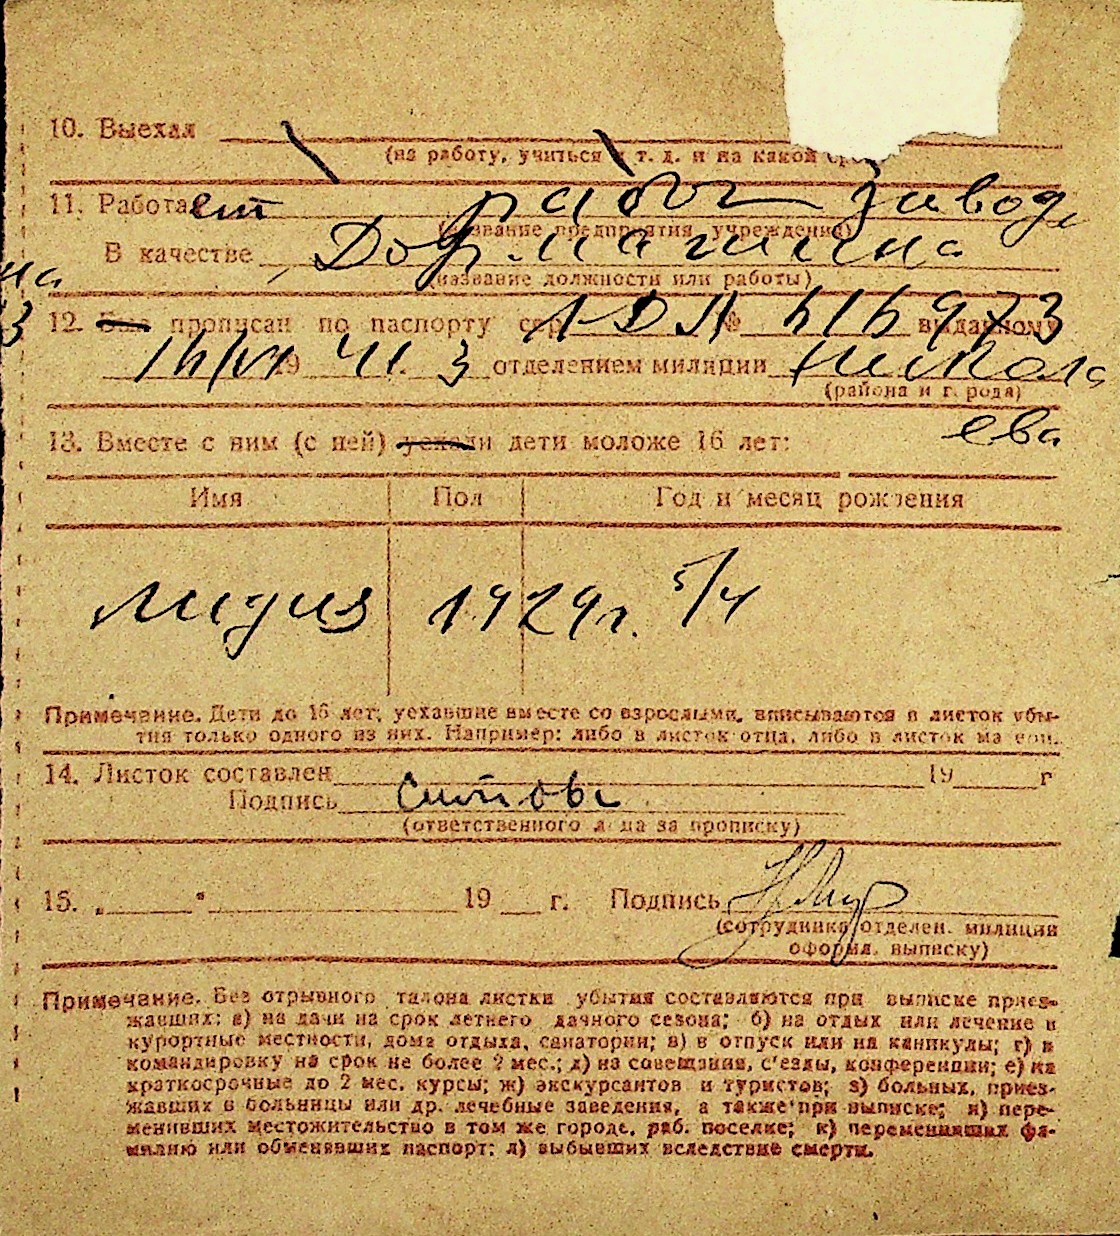 10. Выехал
(на работу, учиться и т. д. и на какой срок)
11. Работает работ заводе
(название предприятия, учреждения)
В качестве Дормашина
(название должности или работы)
на
3
12. Был прописан по паспорту сер № 616973 выданному
16/VI 19 41. 3 отделением милиции Никола
(района и г. рода)
ева
13. Вместе с ним (с ней) уехали дети моложе 16 лет:
Имя Пол Год и месяц рождения
Лидия 1929г. 5/4
Примечание. Дети до 16 лет, уехавшие вместе со взрослыми, вписываются в листок убы-
тия только одного из них. Например: либо в листок отца, либо в листок матери.
14. Листок составлен 19 г
Подпись
(ответственного лица за прописку)
15. „ “ 19 г. Подпись
(сотрудника отделен. милиции
оформл. выписку)
Примечание. Без отрывного талона листки убытия составляются при выписке приез-
жавших: а) на дачи на срок летнего дачного сезона; б) на отдых или лечение в
курортные местности, дома отдыха, санатории; в) в отпуск или на каникулы; г) в
командировку на срок не более 2 мес.; д) на совещания, с'езды, конференции; е) на
краткосрочные до 2 мес. курсы; ж) экскурсантов и туристов; з) больных, приез-
жавших в больницы или др. лечебные заведения, а также при выписке; и) пере-
менивших местожительство в том же городе, раб. поселке; к) переменивших фа-
милию или обменявших паспорт; л) выбывших вследствие смерти.